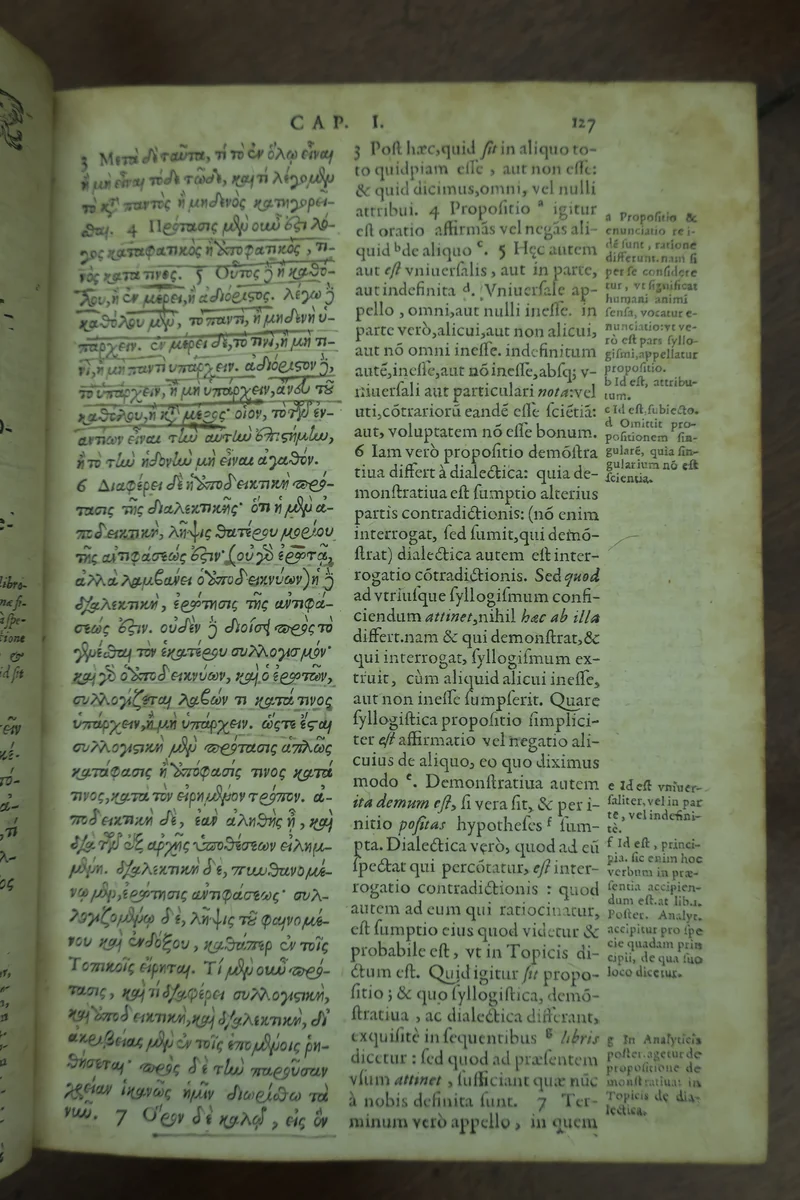 CAP. I. 127
3 Μετὰ δὲ ταῦτα, τί τὸ ἐν ὅλῳ εἶναι
ἢ μὴ εἶναι τόδε τῷδε, καὶ τί λέγομεν
τὸ κατὰ παντὸς ἢ μηδενὸς κατηγορεῖ-
σθαι. 4 Πρότασις μὲν οὖν ἐστι λό-
γος καταφατικὸς ἢ ἀποφατικὸς, τι-
νὸς κατά τινος. 5 Οὗτος δὲ ἢ καθό-
λου, ἢ ἐν μέρει, ἢ ἀδιόριστος. λέγω δὲ
καθόλου μὲν, τὸ παντὶ, ἢ μηδενὶ ὑ-
πάρχειν. ἐν μέρει δὲ, τὸ τινὶ, ἢ μὴ τι-
νὶ, ἢ μὴ παντὶ ὑπάρχειν. ἀδιόριστον δὲ,
τὸ ὑπάρχειν, ἢ μὴ ὑπάρχειν, ἄνευ τοῦ
καθόλου, ἢ κατὰ μέρος· οἷον, τὸ τῶν ἐν-
αντίων εἶναι τὴν αὐτὴν ἐπιστήμην,
ἢ τὸ τὴν ἡδονὴν μὴ εἶναι ἀγαθόν.
6 Διαφέρει δὲ ἡ ἀποδεικτικὴ πρό-
τασις τῆς διαλεκτικῆς· ὅτι ἡ μὲν ἀ-
ποδεικτικὴ, λῆψις θατέρου μορίου
τῆς ἀντιφάσεώς ἐστιν· (οὐ γὰρ ἐρωτᾷ,
ἀλλὰ λαμβάνει ὁ ἀποδεικνύων) ἡ δὲ
διαλεκτικὴ, ἐρώτησις τῆς ἀντιφά-
σεώς ἐστιν. οὐδὲν δὲ διοίσει πρὸς τὸ
γενέσθαι τὸν ἑκατέρου συλλογισμόν·
καὶ γὰρ ὁ ἀποδεικνύων, καὶ ὁ ἐρωτῶν,
συλλογίζεται λαβών τι κατά τινος
ὑπάρχειν, ἢ μὴ ὑπάρχειν. ὥστε ἔσται
συλλογιστικὴ μὲν πρότασις ἁπλῶς
κατάφασις ἢ ἀπόφασίς τινος κατά
τινος, κατὰ τὸν εἰρημένον τρόπον. ἀ-
ποδεικτικὴ δὲ, ἐὰν ἀληθὴς ᾖ, καὶ
διὰ τῶν ἐξ ἀρχῆς ὑποθέσεων εἰλημ-
μένη. διαλεκτικὴ δὲ, πυνθανομέ-
νῳ μὲν, ἐρώτησις ἀντιφάσεως· συλ-
λογιζομένῳ δὲ, λῆψις τοῦ φαινομέ-
νου καὶ ἐνδόξου, καθάπερ ἐν τοῖς
Τοπικοῖς εἴρηται. Τί μὲν οὖν πρό-
τασις, καὶ τί διαφέρει συλλογιστικὴ,
καὶ ἀποδεικτικὴ, καὶ διαλεκτικὴ, δι'
ἀκριβείας μὲν ἐν τοῖς ἑπομένοις ῥη-
θήσεται· πρὸς δὲ τὴν παροῦσαν
χρείαν ἱκανῶς ἡμῖν διωρίσθω τὰ
νῦν. 7 Ὅρον δὲ καλῶ, εἰς ὃν
3 Post hæc, quid sit in aliquo to-
to quidpiam esse, aut non esse:
& quid dicimus, omni, vel nulli
attribui. 4 Propositio a igitur
est oratio affirmãs vel negãs ali-
quid b de aliquo c. 5 Hęc autem
aut est vniuersalis, aut in parte,
aut indefinita d. Vniuersale ap-
pello, omni, aut nulli inesse. in
parte verò, alicui, aut non alicui,
aut nõ omni inesse. indefinitum
autē, inesse, aut nõ inesse, absq; v-
niuersali aut particulari nota: vel
uti, cõtrariorũ eandē esse sciētiã:
aut, voluptatem nõ esse bonum.
6 Iam verò propositio demõstra
tiua differt à dialectica: quia de-
monstratiua est sumptio alterius
partis contradictionis: (nõ enim
interrogat, sed sumit, qui demõ-
strat) dialectica autem est inter-
rogatio cõtradictionis. Sed quod
ad vtriusque syllogismum confi-
ciendum attinet, nihil hæc ab illa
differt. nam & qui demonstrat, &
qui interrogat, syllogismum ex-
truit, cùm aliquid alicui inesse,
aut non inesse sumpserit. Quare
syllogistica propositio simplici-
ter est affirmatio vel negatio ali-
cuius de aliquo, eo quo diximus
modo e. Demonstratiua autem
ita demum est, si vera sit, & per i-
nitio positas hypotheses f sum-
pta. Dialectica verò, quod ad eũ
spectat qui percõtatur, est inter-
rogatio contradictionis: quod
autem ad eum qui ratiocinatur,
est sumptio eius quod videtur &
probabile est, vt in Topicis di-
ctum est. Quid igitur sit propo-
sitio; & quo syllogistica, demõ-
stratiua, ac dialectica differant,
exquisitè in sequentibus g libris
dicetur: sed quod ad præsentem
vsum attinet, sufficiant quæ nũc
à nobis definita sunt. 7 Ter-
minum verò appello, in quem
a Propositio &
enunciatio re i-
dē sunt, ratione
differunt. nam si
per se considere
tur, vt significat
humani animi
sensa, vocatur e-
nunciatio: vt ve-
rò est pars syllo-
gismi, appellatur
propositio.
b Id est, attribu-
tum.
c Id est, subiecto.
d Omittit pro-
positionem sin-
gularē, quia sin-
gularium nõ est
scientia.
e Id est vniuer-
saliter, vel in par
te, vel indefini-
tè.
f Id est, princi-
pia. sic enim hoc
verbum in præ-
sentia accipien-
dum est. at lib. 1.
Poster. Analyt.
accipitur pro spe
cie quadam prin
cipii, de qua suo
loco dicetur.
g In Analyticis
poster. agetur de
propositione de
monstratiua: in
Topicis de dia-
lectica.